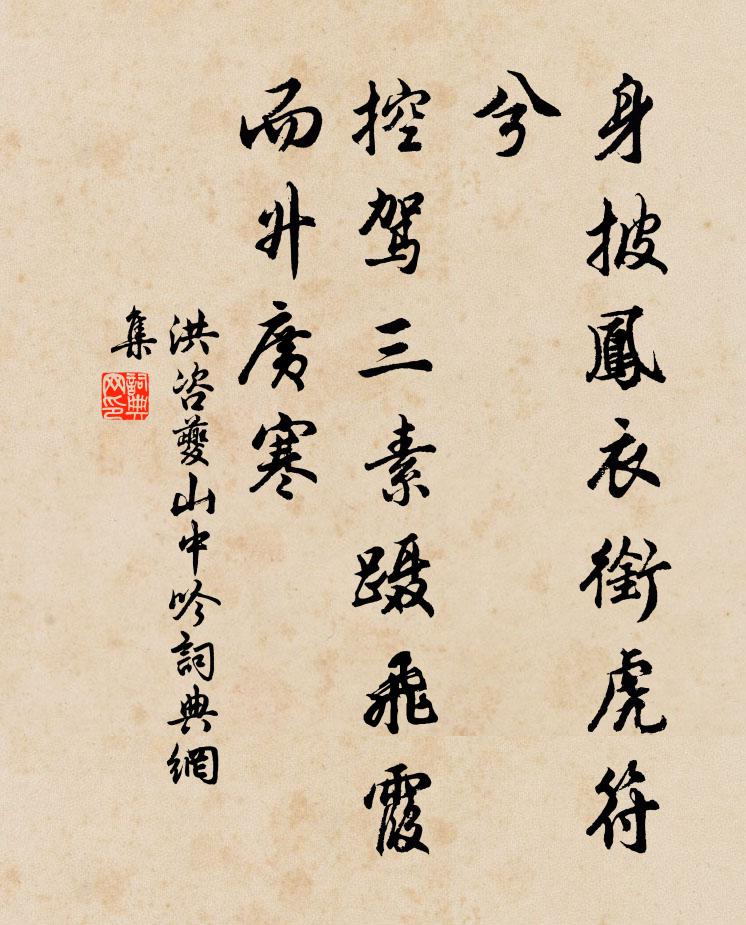 身披鳳衣銜虎符
兮
控駕三素躡飛霞
而升廣寒
洪咨夔山中吟詞典網
集
詞典
网印